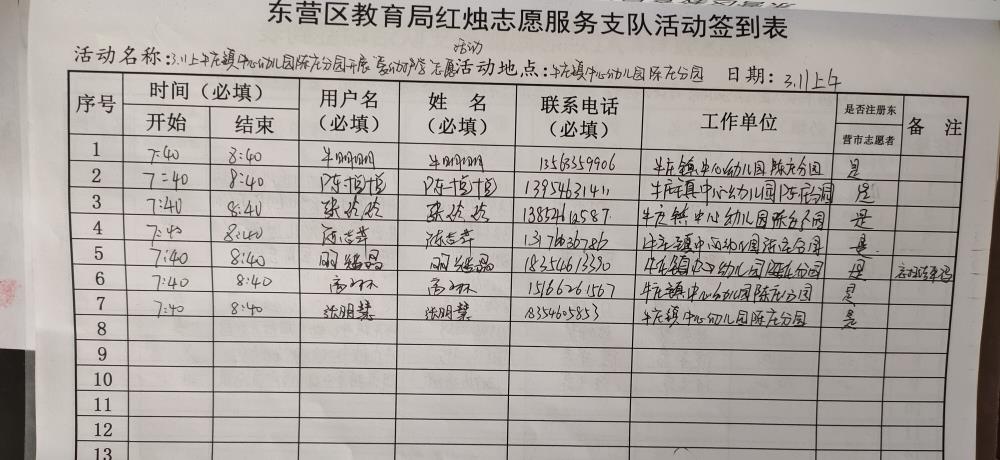 东营区教育局红烛志愿服务支队活动签到表
活动
活动名称:3.11上牛庄镇中心幼儿园陈庄分园开展 志愿活动地点:牛庄镇中心幼儿园陈庄分园 日期:3.11上午
序号 时间(必填) 用户名(必填) 姓 名(必填) 联系电话(必填) 工作单位 是否注册东营市志愿者 备 注
开始 结束
1 7:40 8:40 牛明明 牛明明 13563559906 牛庄镇中心幼儿园陈庄分园 是
2 7:40 8:40 陈恒恒 陈恒恒 13954631411 牛庄镇中心幼儿园陈庄分园 是
3 7:40 8:40 张玲玲 张玲玲 13854612587 牛庄镇中心幼儿园陈庄分园 是
4 7:40 8:40 13176636786 牛庄镇中心幼儿园陈庄分园 是
5 7:40 8:40 18354613390 牛庄镇中心幼儿园陈庄分园 是
6 7:40 8:40 15166261567 牛庄镇中心幼儿园陈庄分园 是
7 7:40 8:40 张明慧 张明慧 18354605853 牛庄镇中心幼儿园陈庄分园 是
8
9
10
11
12
13